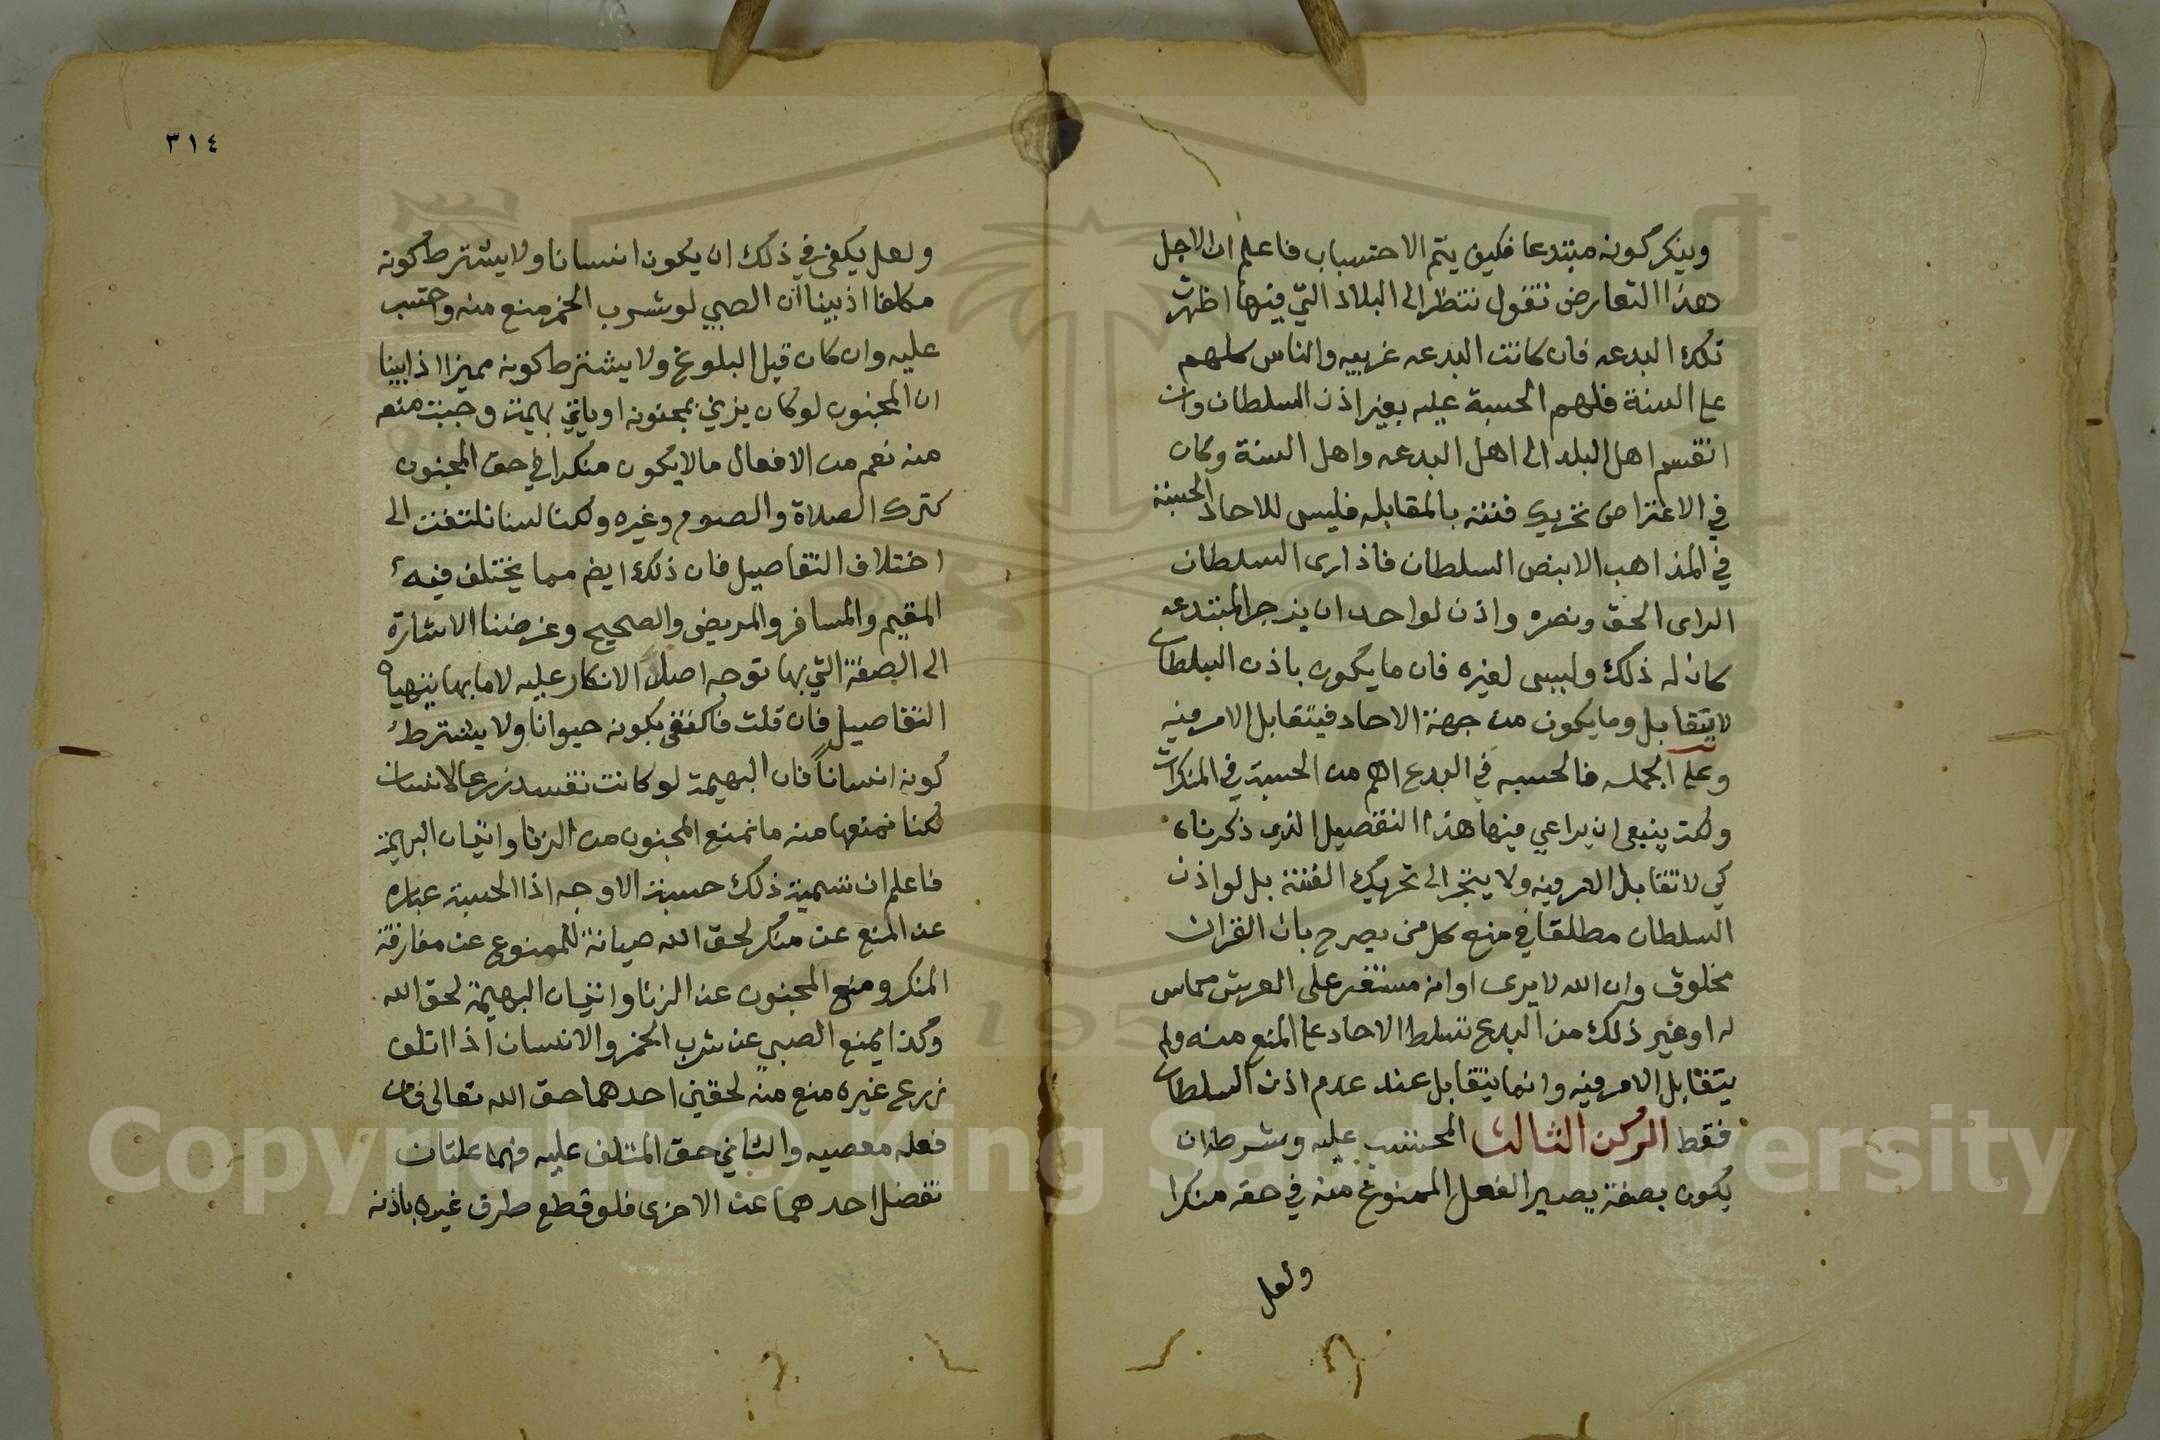 وينكر كونه مبتدعا فكيف يتم الاحتساب فاعلم ان لاجل
هذا التعارض نقول ننظر الى البلاد التي فيها اظهرت
تلك البدعه فان كانت البدعه غريبه والناس كلهم
على السنة فلهم الحسبة عليه بغير اذن السلطان وان
انقسم اهل البلد الى اهل البدعه واهل السنة وكان
في الاعتراض تحريك فتنه بالمقابله فليس للاحاد الحسبة
في المذاهب الا بنص السلطان فاذا راى السلطان
الراى الحق ونصره واذن لواحد ان يزجر المبتدعه
كان له ذلك وليس لغيره فان ما يكون باذن السلطان
لا يتقابل وما يكون من جهة الاحاد فيتقابل الامر فيه
وعلى الجمله فالحسبه في البدع اهم من الحسبة في المنكرات
ولكن ينبغى ان يراعي فيها هذا التفصيل الذى ذكرناه
كي لا تقابل الامر فيه ولا ينجر الى تحريك الفتنة بل لو اذن
السلطان مطلقا في منع كل من يصرح بان القران
مخلوق وان الله لا يرى او انه مستقر على العرش مماس
له او غير ذلك من البدع تسلط الاحاد على المنع منه ولم
يتقابل الامر فيه وانما يتقابل عند عدم اذن السلطان
فقط الركن الثالث المحتسب عليه وشرطه ان
يكون بصفة يصير الفعل الممنوع منه في حقه منكرا
ولعل
٣١٤
ولعل يكفى في ذلك ان يكون انسانا ولا يشترط كونه
مكلفا اذ بينا ان الصبي لو شرب الخمر منع منه واحتسب
عليه وان كان قبل البلوغ ولا يشترط كونه مميزا اذ ابينا
ان المجنون لو كان يزني بمجنونه او ياتي بهيمة وجبت منعه
منه نعم من الافعال ما لا يكون منكرا في حق المجنون
كترك الصلاة والصوم وغيره ولكنا لسنا نلتفت الى
اختلاف التفاصيل فان ذلك ايضم مما يختلف فيه
المقيم والمسافر والمريض والصحيح وغرضنا الاشارة
الى الصفة التي بها توجه اصل الانكار عليه لا ما بها يتهيا
التفاصيل فان قلت فاكتفى بكونه حيوانا ولا يشترط
كونه انسانا فان البهيمة لو كانت تفسد زرعا لانسان
لكنا نمنعها منه ما نمنع المجنون من الزنا واتيان البهيمة
فاعلم ان تسمية ذلك حسبة لا وجه اذا الحسبة عباره
عن المنع عن منكر لحق الله صيانة للممنوع عن مفارقة
المنكر ومنع المجنون عن الزنا واتيان البهيمة لحق الله
وكذا يمنع الصبي عن شرب الخمر والانسان اذا اتلف
زرع غيره منع منه لحقين احدهما حق الله تعالى فان
فعله معصيه والثاني حق المتلف عليه فهما علتان
تفضل احدهما عن الاخرى فلو قطع طرف غيره باذنه
Copyright © King Saud University
1957